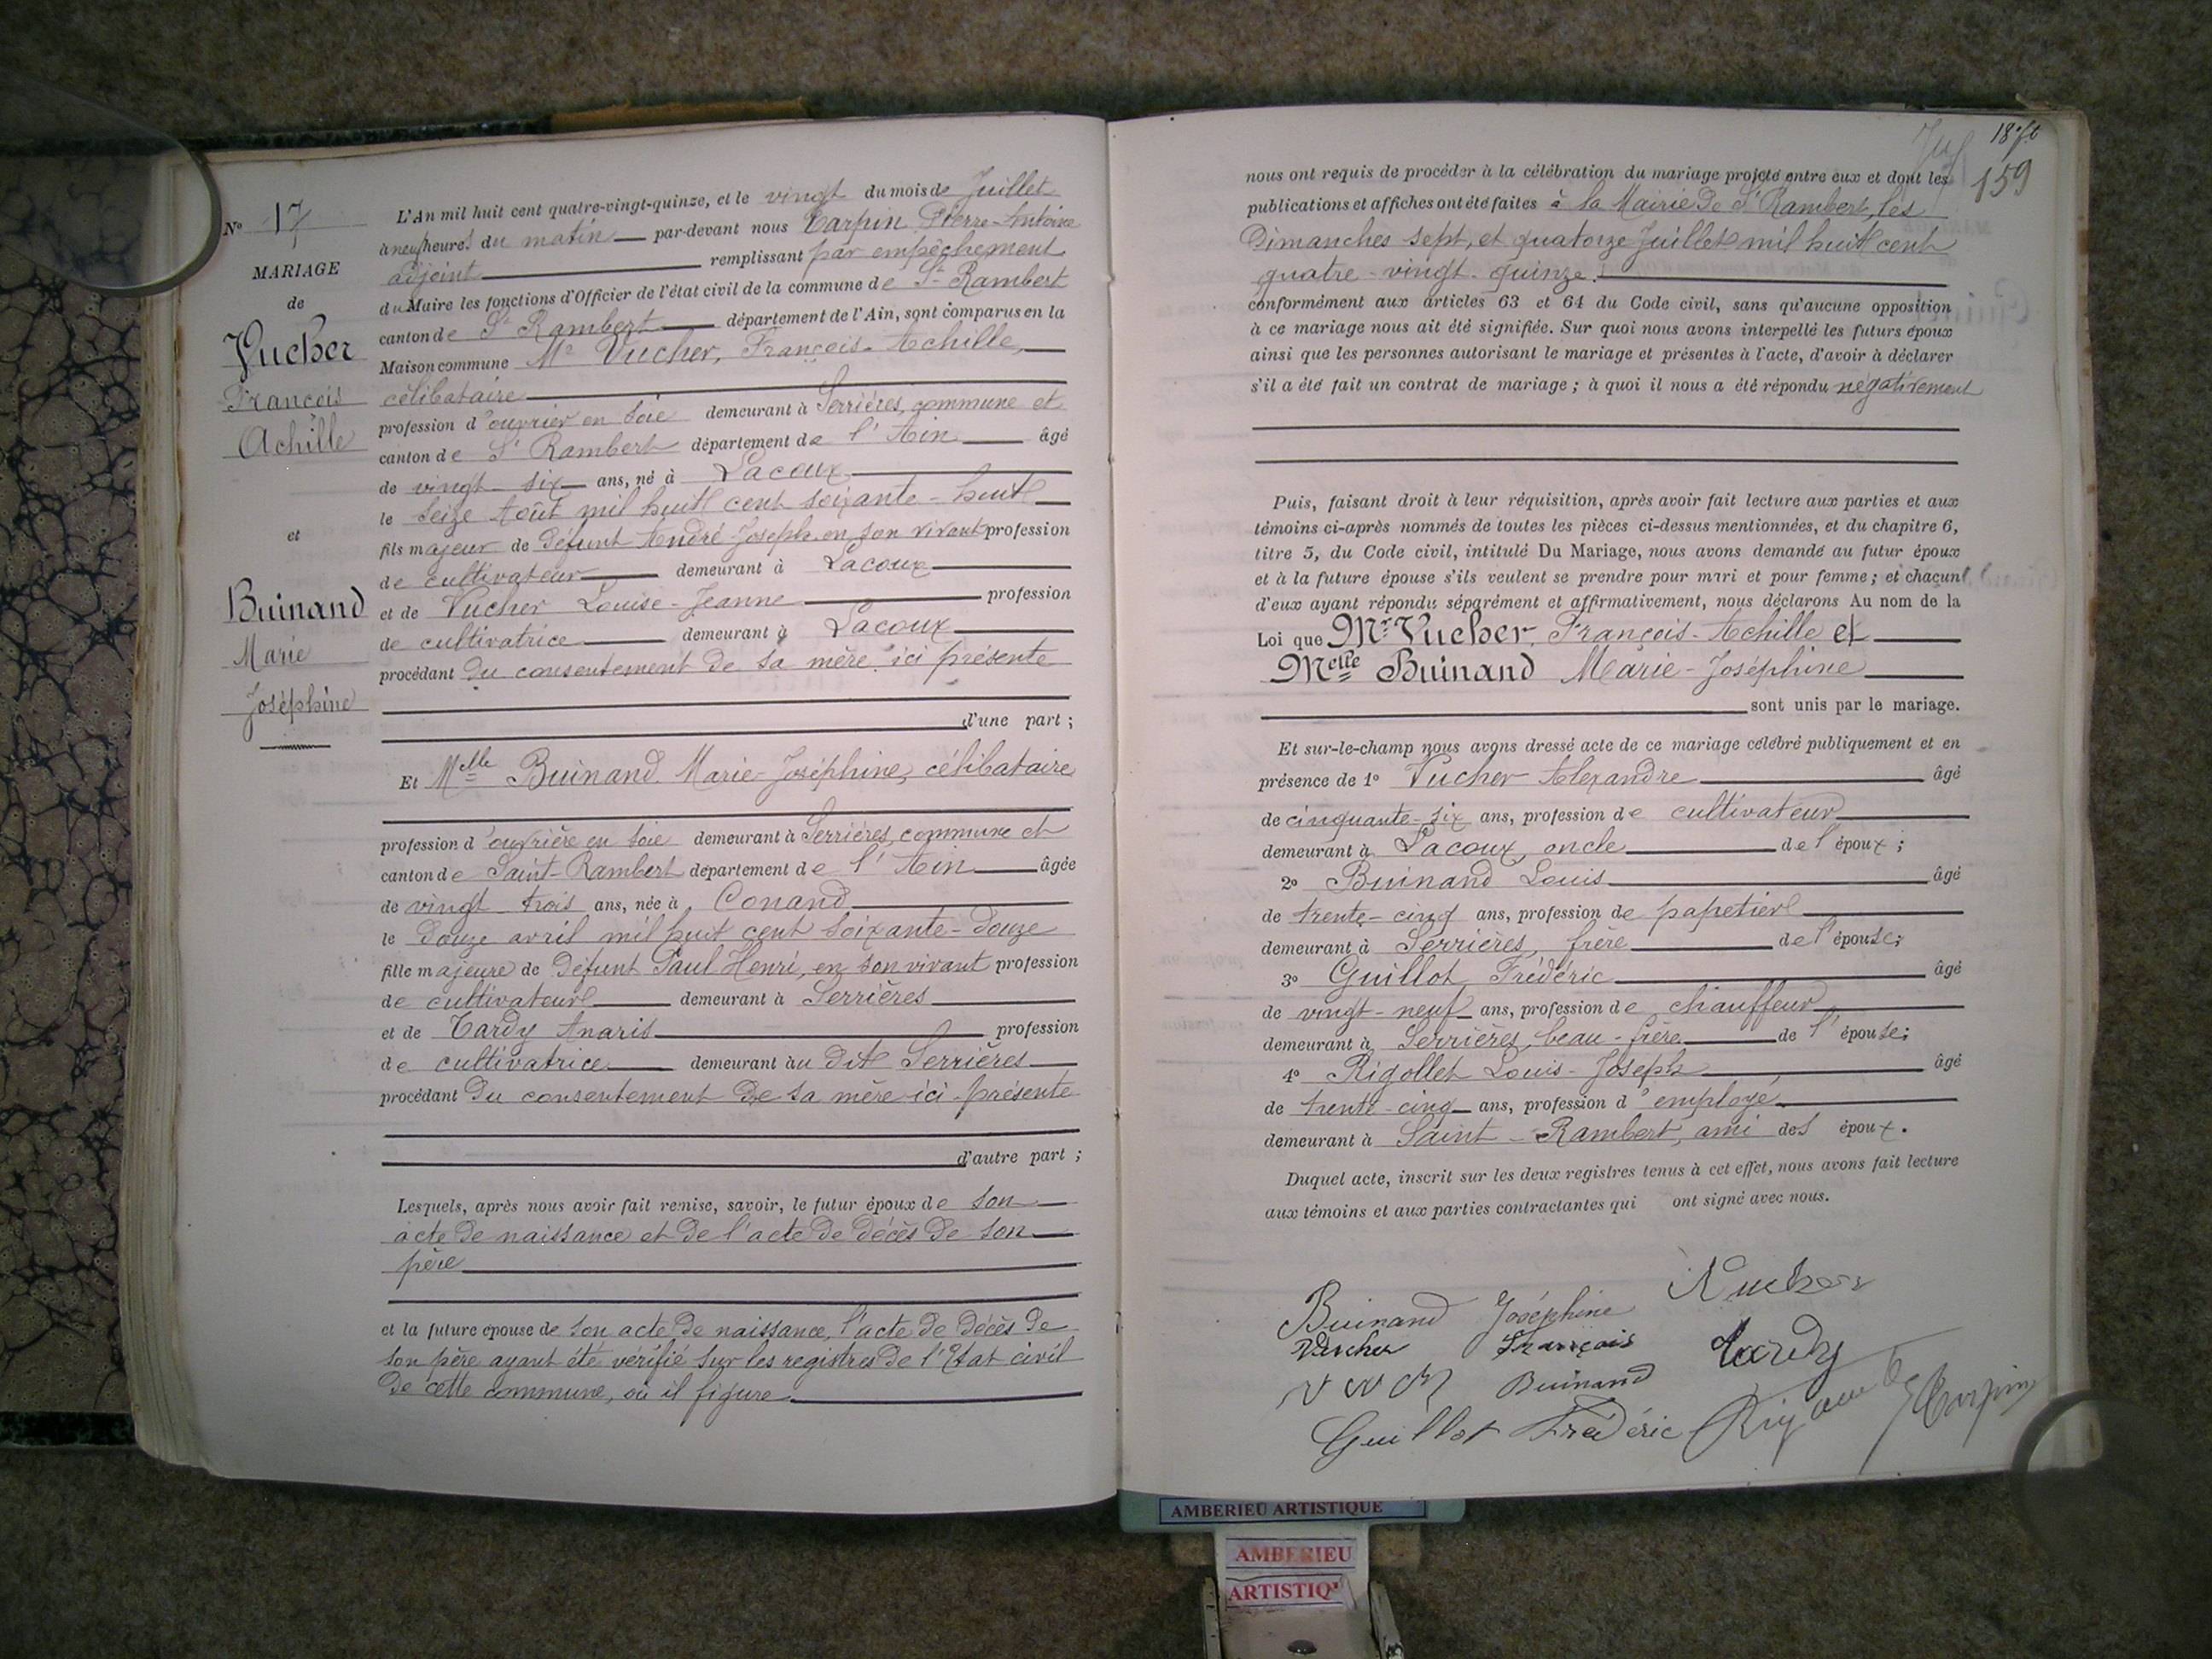 Nº 17
MARIAGE
de
Vucher
François
Achille
et
Buinand
Marie
Joséphine
L'An mil huit cent quatre-vingt-quinze, et le vingt du mois de Juillet
à neuf heures du matin par-devant nous Tarpin Pierre-Antoine
adjoint remplissant par empêchement
du Maire les fonctions d'Officier de l'état civil de la commune de St Rambert
canton de St Rambert département de l'Ain, sont comparus en la
Maison commune Mr Vucher, François-Achille,
célibataire
profession d'ouvrier en soie demeurant à Serrières, commune et
canton de St Rambert département de l'Ain âgé
de vingt-six ans, né à Lacoux
le seize Août mil huit cent soixante-huit
fils majeur de défunt André-Joseph en son vivant profession
de cultivateur demeurant à Lacoux
et de Vucher Louise-Jeanne profession
de cultivatrice demeurant à Lacoux
procédant du consentement de sa mère ici présente
d'une part ;
Et Melle Buinand Marie-Joséphine, célibataire
profession d'ouvrière en soie demeurant à Serrières, commune et
canton de Saint-Rambert département de l'Ain âgée
de vingt-trois ans, née à Conand
le douze avril mil huit cent soixante-douze
fille majeure de défunt Paul Henri, en son vivant profession
de cultivateur demeurant à Serrières
et de Tardy Anaris profession
de cultivatrice demeurant au dit Serrières
procédant du consentement de sa mère ici-présente
d'autre part ;
Lesquels, après nous avoir fait remise, savoir, le futur époux de son
acte de naissance et de l'acte de décès de son
père
et la future épouse de son acte de naissance, l'acte de décès de
son père ayant été vérifié sur les registres de l'Etat civil
de cette commune, où il figure
18 ft
159
nous ont requis de procéder à la célébration du mariage projeté entre eux et dont les
publications et affiches ont été faites à la Mairie de St Rambert, les
Dimanches sept, et quatorze Juillet mil huit cent
quatre-vingt-quinze.
conformément aux articles 63 et 64 du Code civil, sans qu'aucune opposition
à ce mariage nous ait été signifiée. Sur quoi nous avons interpellé les futurs époux
ainsi que les personnes autorisant le mariage et présentes à l'acte, d'avoir à déclarer
s'il a été fait un contrat de mariage ; à quoi il nous a été répondu négativement
Puis, faisant droit à leur réquisition, après avoir fait lecture aux parties et aux
témoins ci-après nommés de toutes les pièces ci-dessus mentionnées, et du chapitre 6,
titre 5, du Code civil, intitulé Du Mariage, nous avons demandé au futur époux
et à la future épouse s'ils veulent se prendre pour mari et pour femme ; et chacun
d'eux ayant répondu séparément et affirmativement, nous déclarons Au nom de la
Loi que Mr Vucher, François-Achille et
Melle Buinand Marie-Joséphine
sont unis par le mariage.
Et sur-le-champ nous avons dressé acte de ce mariage célébré publiquement et en
présence de 1º Vucher Alexandre âgé
de cinquante-six ans, profession de cultivateur
demeurant à Lacoux, oncle de l'époux ;
2º Buinand Louis âgé
de trente-cinq ans, profession de papetier
demeurant à Serrières, frère de l'épouse ;
3º Guillot Frédéric âgé
de vingt-neuf ans, profession de chauffeur
demeurant à Serrières, beau-frère de l'épouse ;
4º Rigollet Louis-Joseph âgé
de trente-cinq ans, profession d'employé,
demeurant à Saint-Rambert, ami des époux.
Duquel acte, inscrit sur les deux registres tenus à cet effet, nous avons fait lecture
aux témoins et aux parties contractantes qui ont signé avec nous.
Buinand Joséphine Vucher
Vucher François Tardy
Buinand
Guillot Frédéric Tarpin
AMBERIEU ARTISTIQUE
AMBERIEU
ARTISTIQ